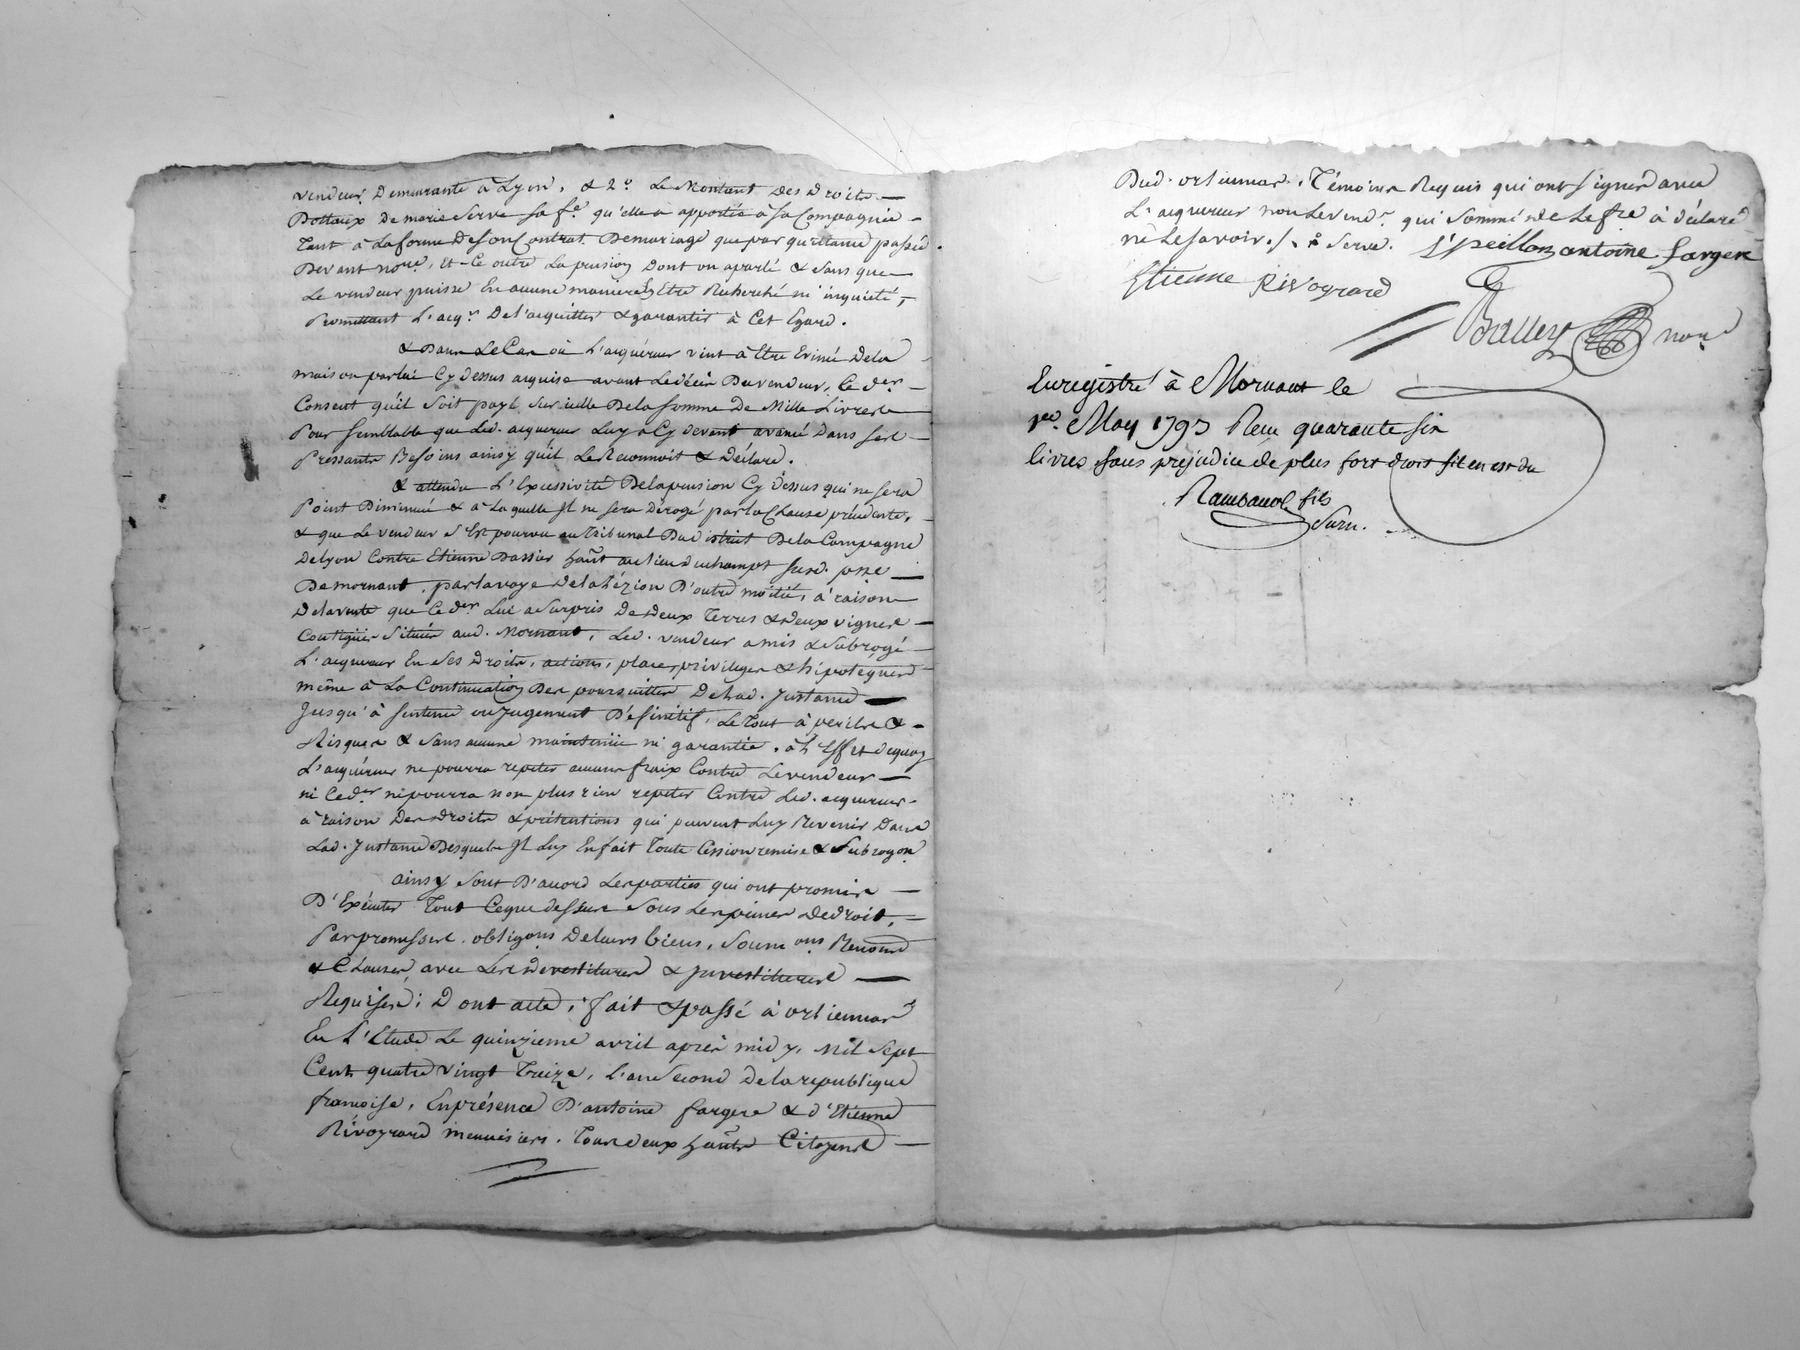 vendeur Demeurante à Lyon, & 2° Le Montant Des Droits —
Dottaux De marie Serve sa fe qu'elle a apportée à sa Compagnie —
Tant à La forme De son Contrat De mariage que par quittance passée
Devant nore, Et Ce outre La pension Dont on a parlé & sans que —
Le vendeur puisse En aucune maniere Ey Etre Recherché ni inquiété, —
Promettant L'acqr De l'acquitter & garantir à Cet Egard.
& Dans Le Cas où L'acquéreur vint à Etre Evincé De la
maison par lui Cy dessus acquise avant Le décès Du vendeur, Ce der —
Consent qu'il soit payé sur icelle De la somme De Mille Livres
Pour semblable que Led. acquereur Luy a Cy devant avancé Dans ses —
Pressants Besoins ainsy qu'il Le Reconnoit & Déclare.
& attendu L'Excessivité De la pension Cy Dessus qui ne sera
Point Diminuée & à La quelle Il ne sera Dérogé par la Clause précédente,
& que Le vendeur s'Est pourvu au Tribunal Du District De la Campagne
De Lyon Contre Etienne Bassier hant au lieu du champt susd. psse —
De mornant, par la voye De la Lézion D'outre moitié, à raison
De la vente que Ce der Lui a Surpris De Deux Terres & Deux vignes —
Contigues Situées aud. Mornant, Led. vendeur a mis & Subrogé —
L'acquereur En Ses Droits, actions, places, privileges & hipoteques
même à La Continuation Des poursuittes De Lad. Instance —
Jusqu'à sentence ou Jugement D'éfinitif, Le Tout à perils & —
Risques & sans aucune maintenüe ni garantie. à L'Effet de quoy
L'acquéreur ne pourra repeter aucuns fraix Contre Le vendeur —
ni Ce der ne pourra non plus rien repeter Contre Led. acquereur —
à raison Des droits & prétentions qui peuvent Luy Revenir Dans
Lad. Instance Desquels Il Luy En fait Toute Cession remise & Subrogon
ainsy sont D'accord Les parties qui ont promis —
D'Exécuter Tout Ce que dessus sous Les peines De droit, —
Par promesses, obligons De leurs biens, soumons Renonce
& Clauses, avec Les devestitures & investitures —
Requises; Dont acte, fait & passé à orlienas
En L'Etude Le quinzieme avril après midy, Mil Sept
Cent quatre vingt Treize, L'an Second De la republique
francoise, En présence D'antoine fargere & d'Etienne
Rivoyrard menuisiers. Tous deux hants Citoyens —
Dud. orlienas. Témoins Requis qui ont signé avec
L'acquereur non Le vendr qui sommé de Le fre à déclaré
ne Le savoir./. Serve. antoine fargere
Etienne Rivoyrard
nore
Enregistré à Mornant le
1er May 1793 Recu quarante six
livres sans prejudice de plus fort droit sil en est du
Rambaud fils